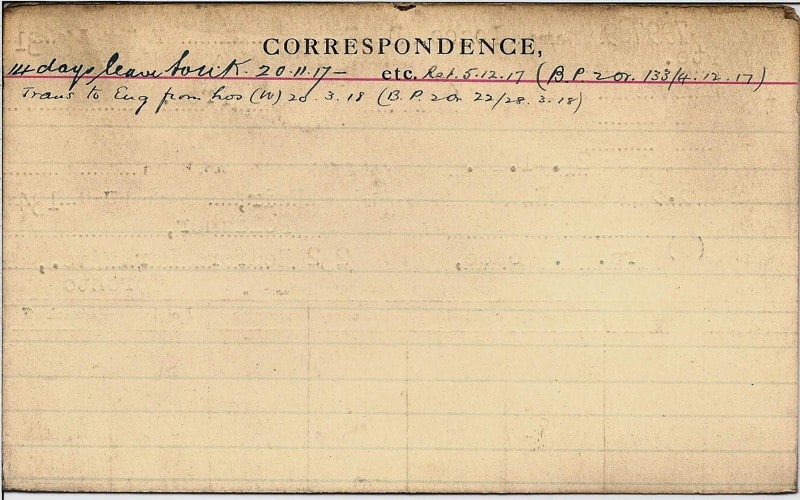 CORRESPONDENCE,
14 days leave to U.K. 20.11.17 — etc. Ret. 5.12.17 (B.P. 2 Or. 133/4.12.17)
Trans to Eng from hos (W) 20.3.18 (B.P. 2 Or 22/28.3.18)